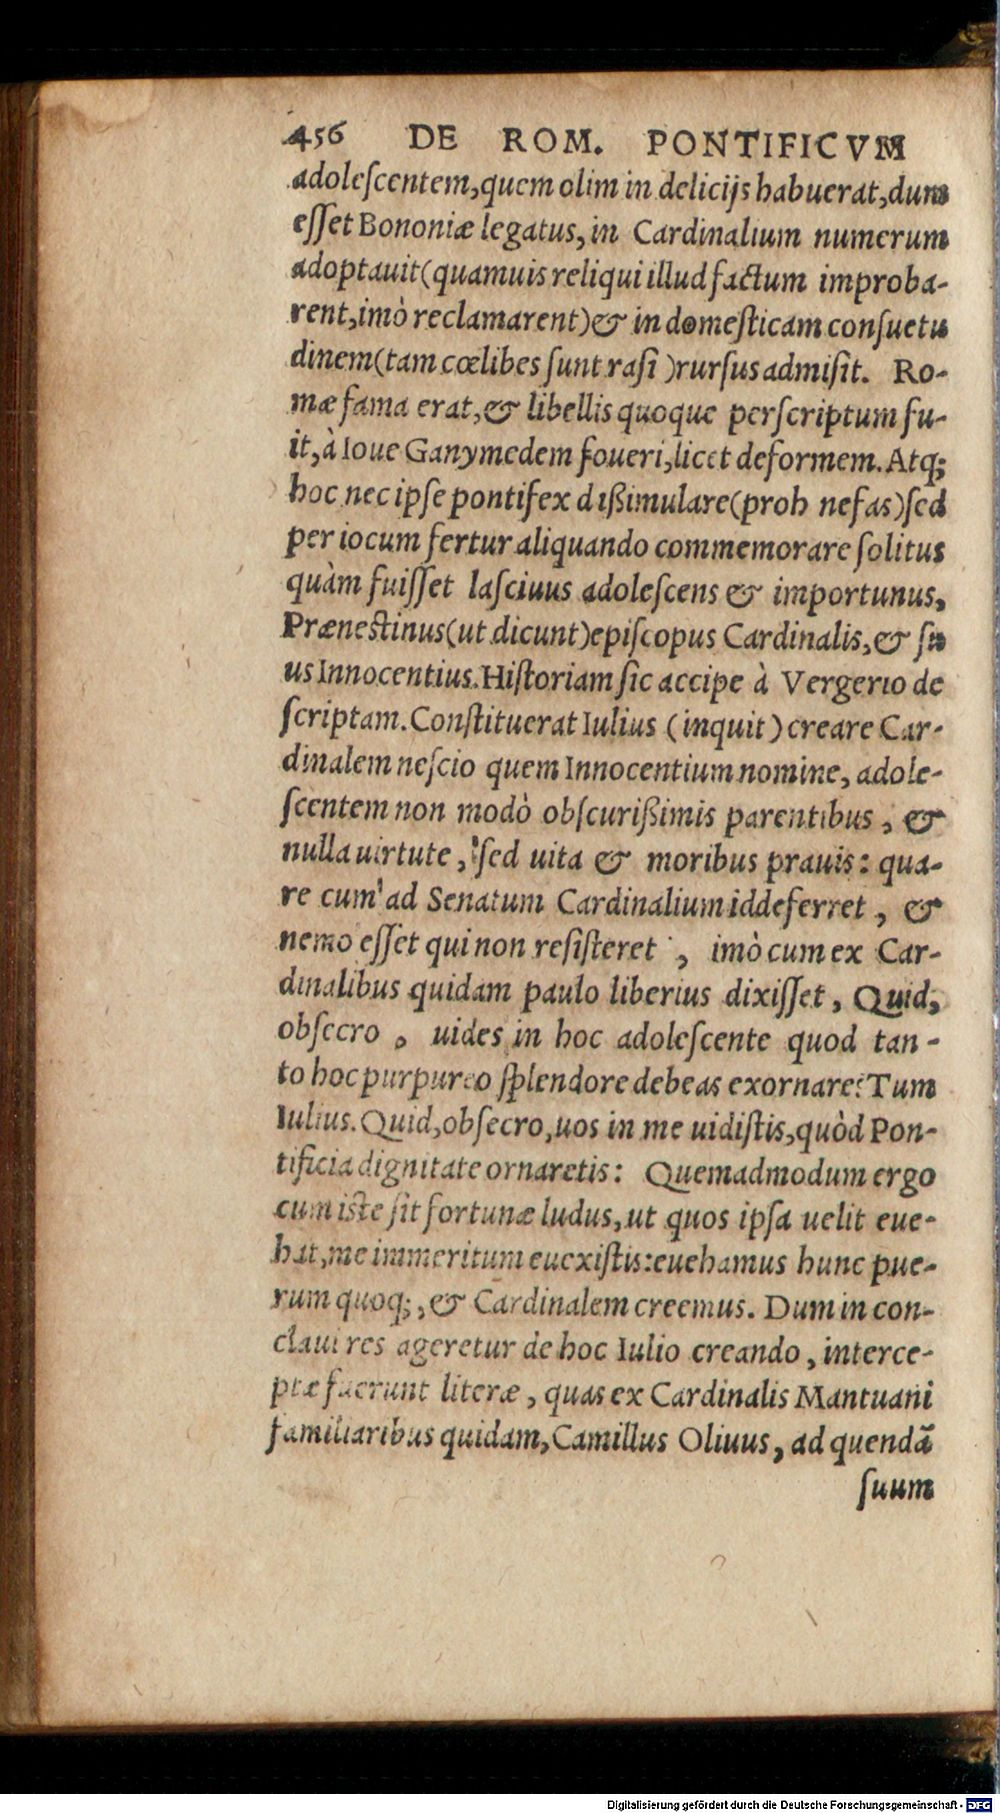 456 DE ROM. PONTIFICVM
adoleſcentem,quem olim in delicijs habuerat,dum
eſſet Bononiæ legatus, in Cardinalium numerum
adoptauit(quamuis reliqui illud factum improba-
rent,imò reclamarent)& in domeſticam conſuetu
dinem(tam cœlibes ſunt raſi )rurſus admiſit. Ro-
mæ fama erat,& libellis quoque perſcriptum fu-
it,à Ioue Ganymedem foueri,licet deformem.Atq;
hoc nec ipſe pontifex dißimulare(proh nefas)ſed
per iocum fertur aliquando commemorare ſolitus
quàm fuiſſet laſciuus adoleſcens & importunus,
Prænestinus(ut dicunt)epiſcopus Cardinalis,& ſu
us Innocentius.Hiſtoriam ſic accipe à Vergerio de
ſcriptam.Conſtituerat Iulius (inquit) creare Car-
dinalem neſcio quem Innocentium nomine, adole-
ſcentem non modò obſcurißimis parentibus, &
nulla uirtute, ſed uita & moribus prauis: qua-
re cum ad Senatum Cardinalium id deferret, &
nemo eſſet qui non reſiſteret, imò cum ex Car-
dinalibus quidam paulo liberius dixiſſet, Quid,
obſecro, uides in hoc adoleſcente quod tan-
to hoc purpureo ſplendore debeas exornare? Tum
Iulius. Quid,obſecro,uos in me uidiſtis,quòd Pon-
tificia dignitate ornaretis: Quemadmodum ergo
cum iste ſit fortunæ ludus,ut quos ipſa uelit eue-
hat,me immeritum euexiſtis:euehamus hunc pue-
rum quoq;,& Cardinalem creemus. Dum in con-
claui res ageretur de hoc Iulio creando, interce-
ptæ fuerunt literæ, quas ex Cardinalis Mantuani
familiaribus quidam,Camillus Oliuus, ad quendã
ſuum
Digitalisierung gefördert durch die Deutsche Forschungsgemeinschaft - DFG